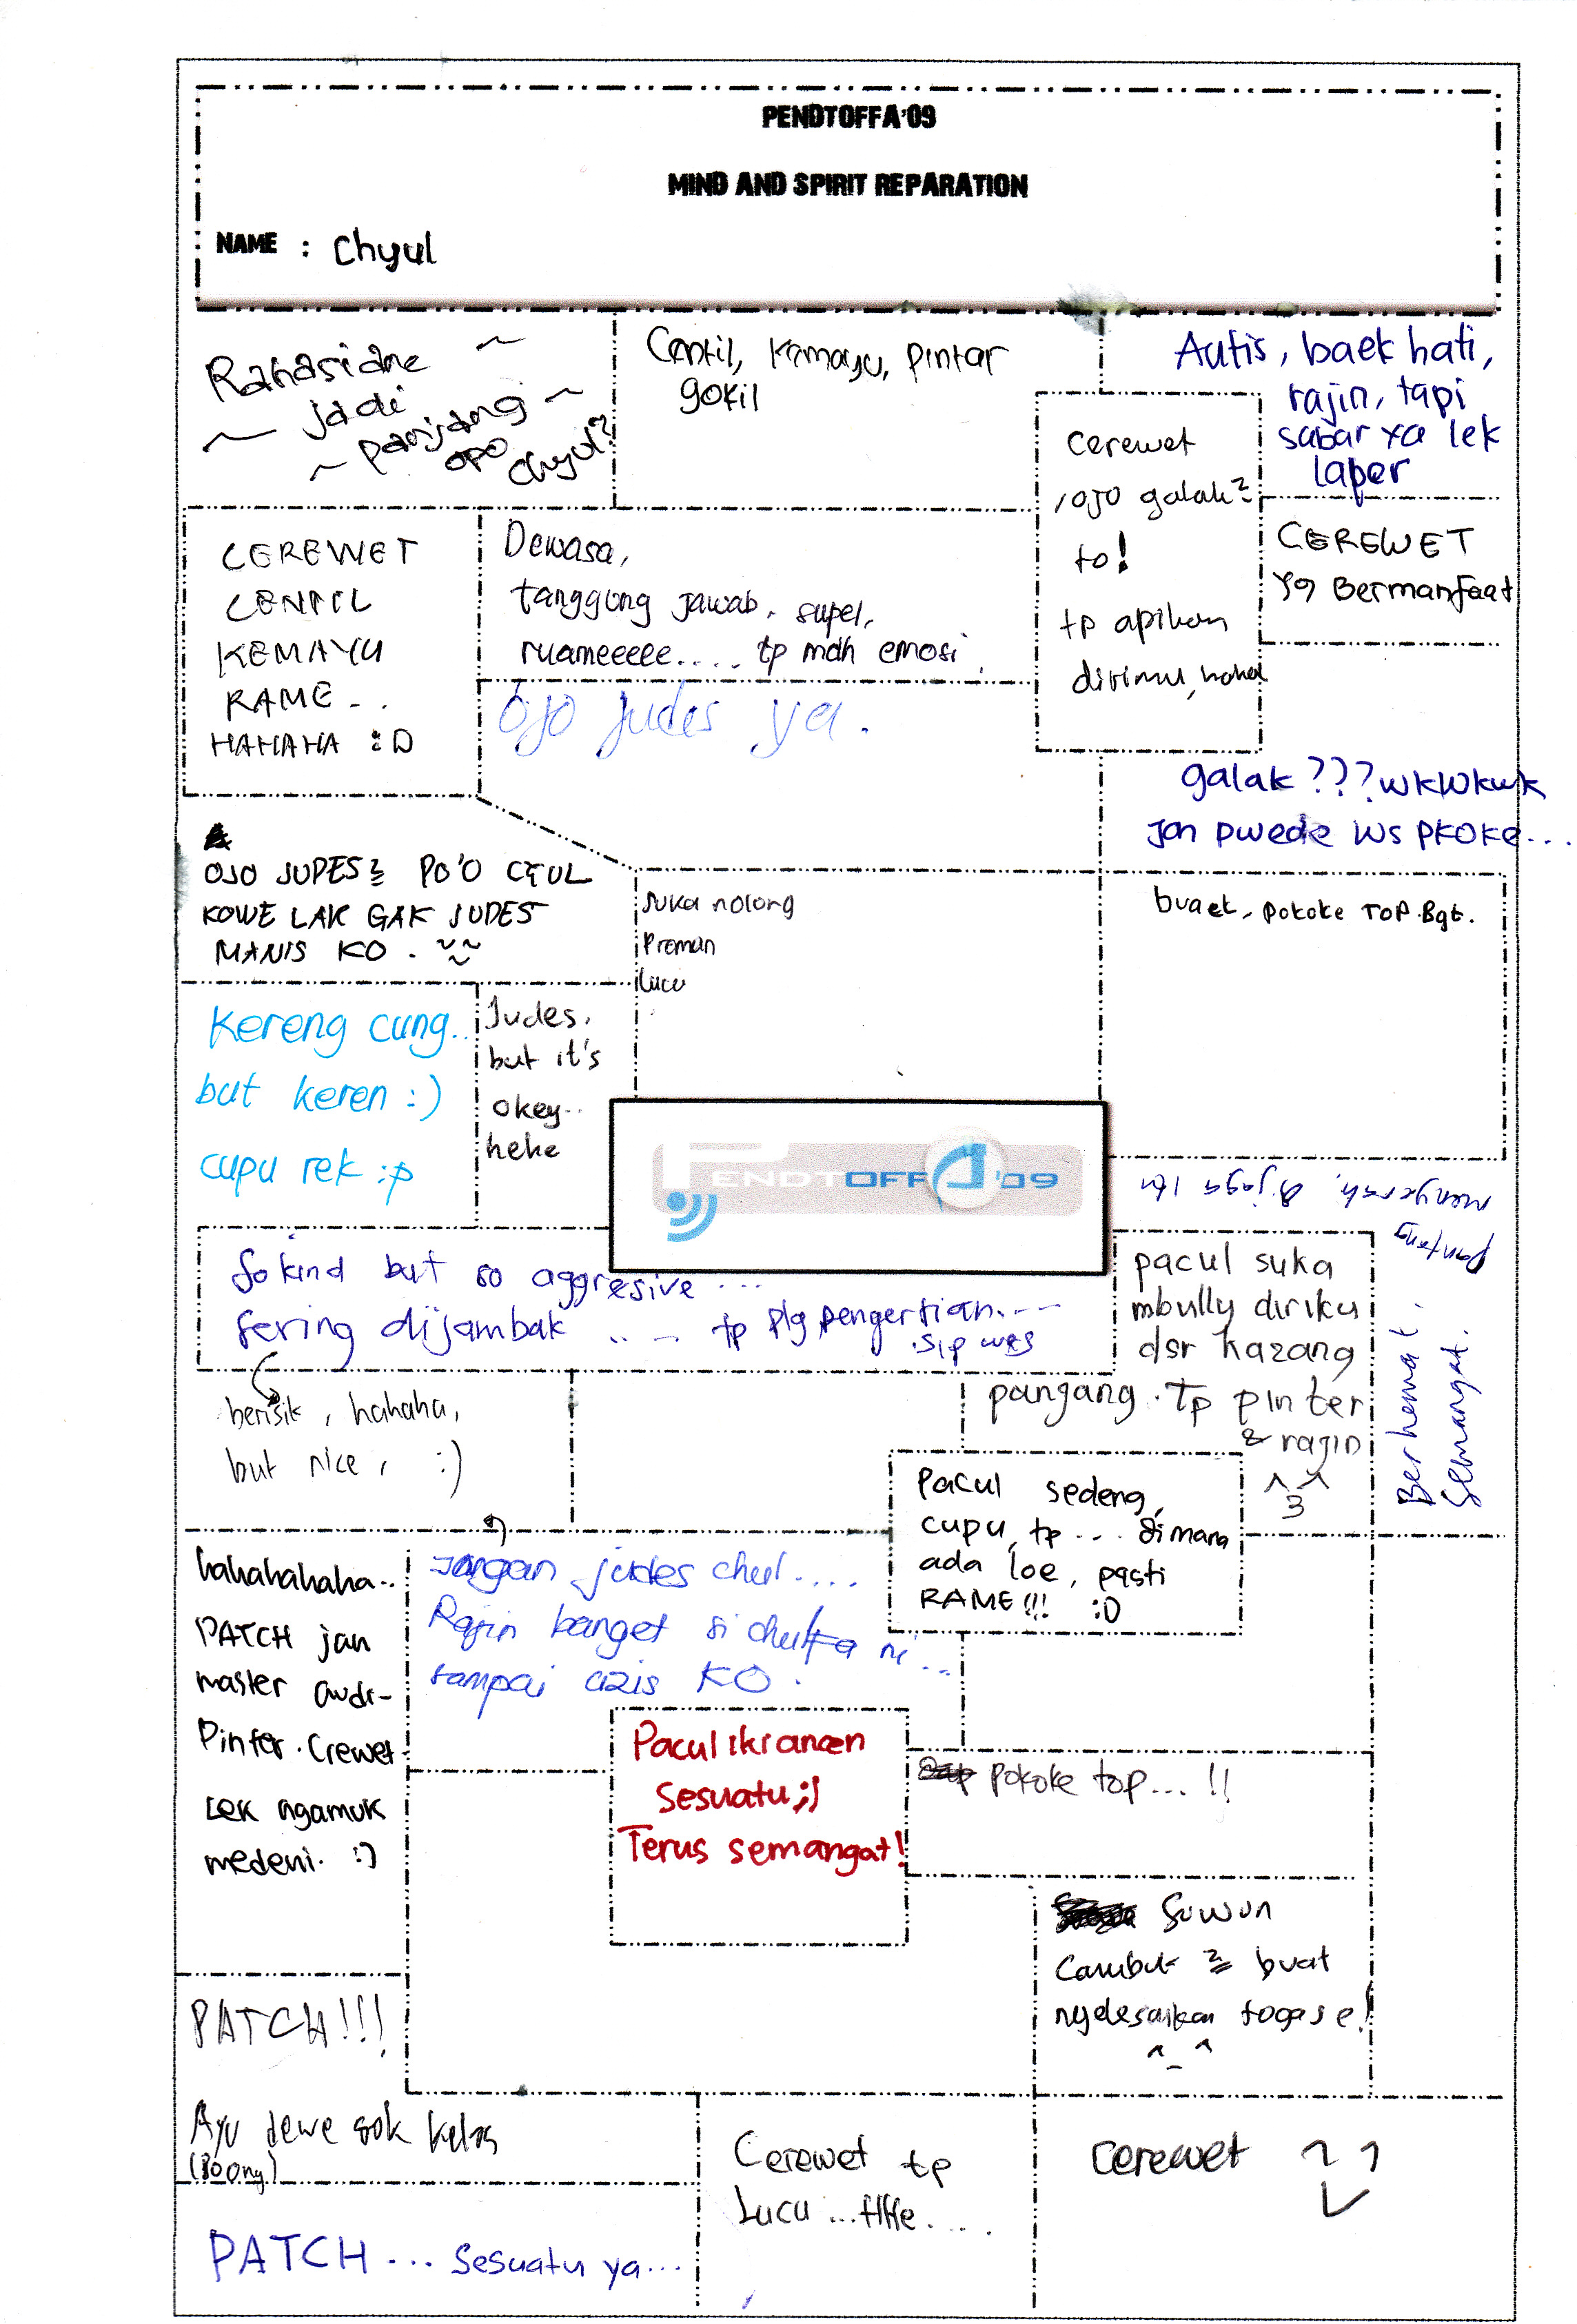 PENDTOFFA'09
MIND AND SPIRIT REPARATION
NAME : Chyul
Rahasiane
jadi
panjang
opo
chyul?
Centil, Kemayu, pintar
gokil
Autis, baek hati,
rajin, tapi
sabar ya lek
laper
cerewet
, ojo galak²
to!
tp apikan
dirimu, haha
CEREWET
yg Bermanfaat
CEREWET
CENTIL
KEMAYU
RAME . .
HAHAHA :D
Dewasa,
tanggung jawab, supel,
ruameeeee..... tp mdh emosi.
Ojo judes ya.
galak ??? wkwkwk
jan pwede ws pkoke...
OJO JUDES² PO'O CYUL
KOWE LAK GAK JUDES
MANIS KO .
suka nolong
Preman
lucu
buaet, pokoke TOP Bgt.
Kereng cung..
but keren :)
cupu rek :p
Judes,
but it's
okey..
hehe
PENDTOFFA '09
pantang
menyerah, dijaga
Berhemat.
Semangat.
So kind but so aggresive ...
sering dijambak .. -- tp plg pengertian.---
sip wes
pacul suka
mbully diriku
dsr kazang
pangang . Tp pinter
& rajin
^3^
berisik, hahaha,
but nice, :)
Pacul sedeng,
cupu, tp ... dimana
ada loe, pasti
RAME!!! :D
hahahahaha..
PATCH jan
master
Pinter . Crewet
Lek ngamuk
medeni. :)
Jangan judes chul....
Rajin banget si chulfa ni...
sampai azis KO.
Pacul ikianaen
Sesuatu ;)
Terus semangat!
pokoke top... !!
Suwun
Cambuk² buat
nyelesaikan togase!
^_^
PATCH!!!
Ayu dewe sak kelas
(Boong)
Cerewet tp
Lucu ... HHe....
cerewet
PATCH ... sesuatu ya...